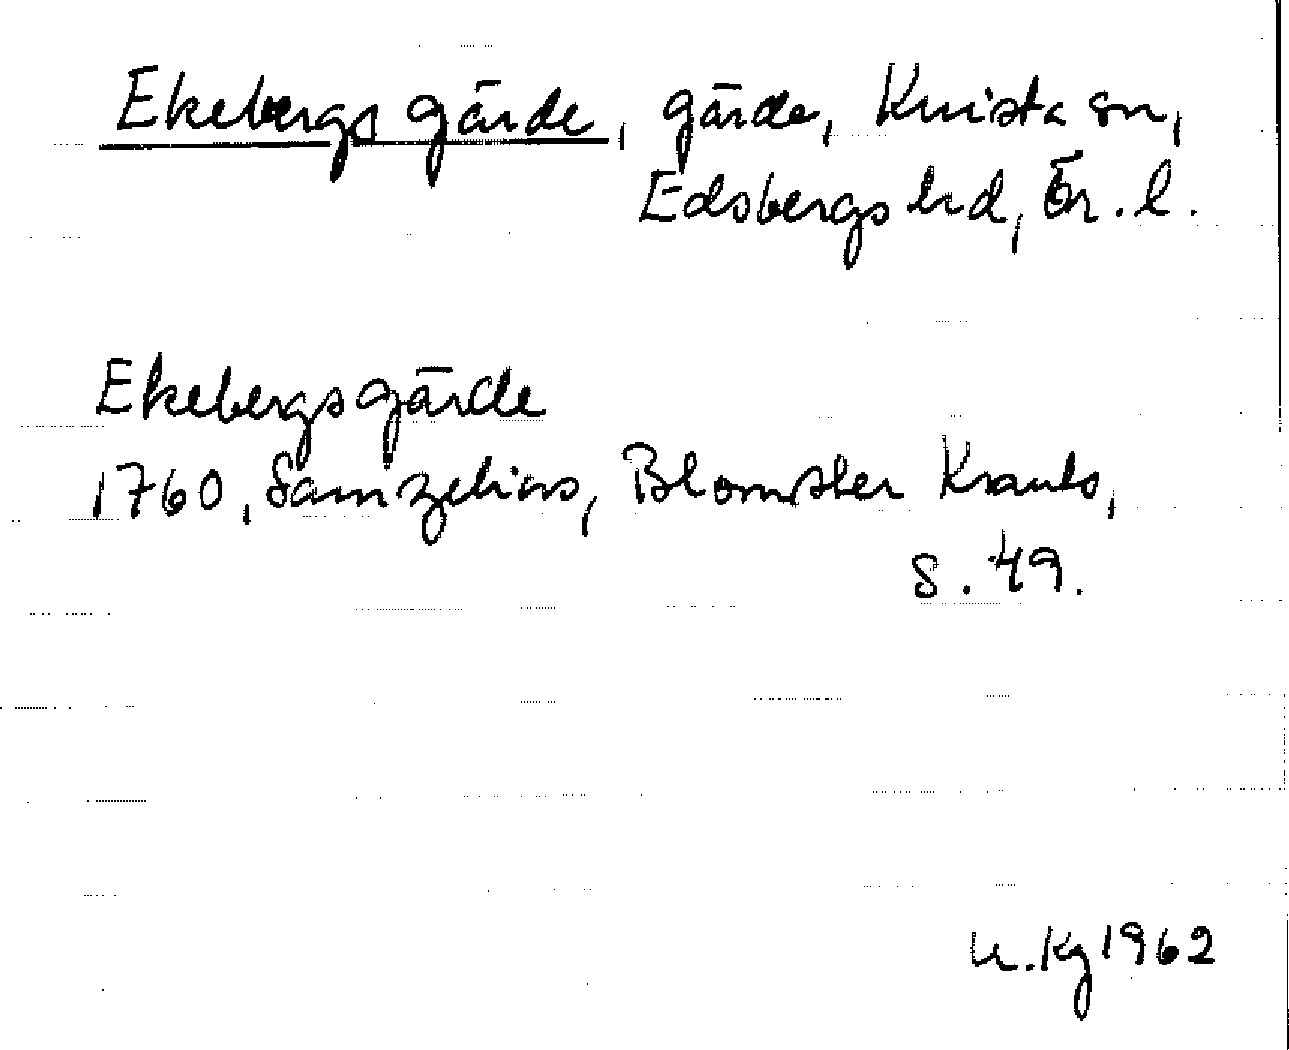 Ekebergsgärde, gärde, Knista sn,
Edsbergs hd, Ör. l.
Ekebergsgärde
1760, Samzelius, Blomster Krants,
s. 49.
U. Kg 1962